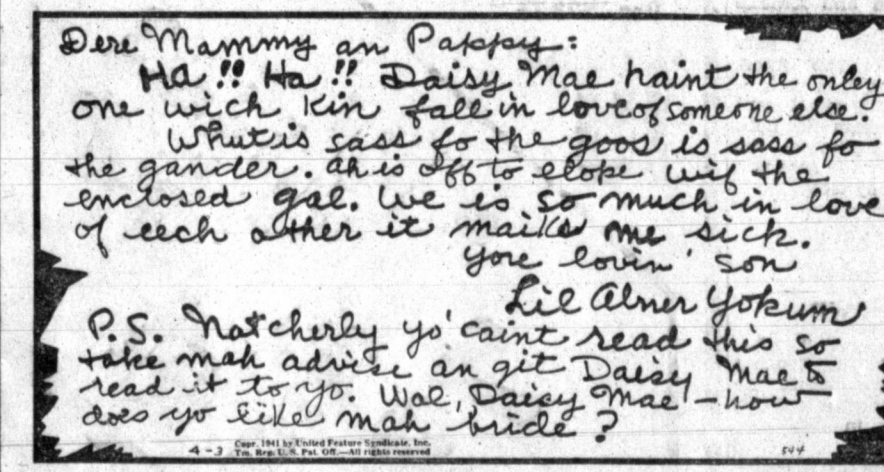 Dere Mammy an Pappy:
Ha!! Ha!! Daisy Mae haint the onley
one wich kin fall in love of someone else.
Whut is sass fo the goos is sass fo
the gander. Ah is off to elope wif the
enclosed gal. We is so much in love
of eech other it maiks me sick.
Yore lovin' son
Lil Abner Yokum
P.S. Natcherly yo' caint read this so
take mah advise an git Daisy Mae to
read it to yo. Wal, Daisy Mae - how
does yo like mah bride?
4-3 Copr. 1941 by United Feature Syndicate, Inc.
Tm. Reg. U. S. Pat. Off.—All rights reserved
544